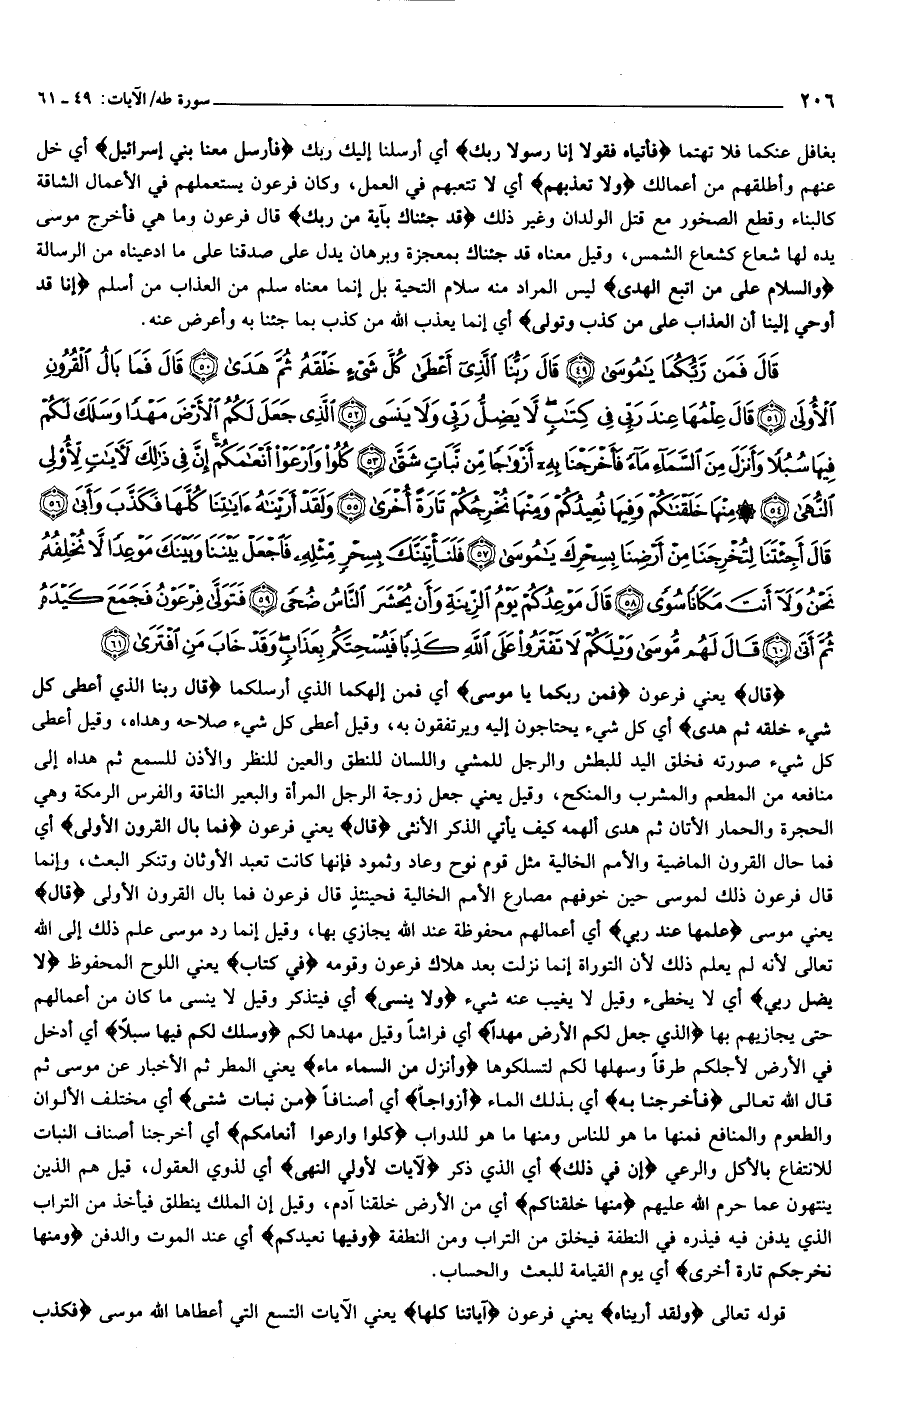 ٢٠٦ سورة طه/ الآيات: ٤٩ ـ ٦١
بغافل عنكما فلا تهتما ﴿فأتياه فقولا إنا رسولا ربك﴾ أي أرسلنا إليك ربك ﴿فأرسل معنا بني إسرائيل﴾ أي خل
عنهم وأطلقهم من أعمالك ﴿ولا تعذبهم﴾ أي لا تتعبهم في العمل، وكان فرعون يستعملهم في الأعمال الشاقة
كالبناء وقطع الصخور مع قتل الولدان وغير ذلك ﴿قد جئناك بآية من ربك﴾ قال فرعون وما هي فأخرج موسى
يده لها شعاع كشعاع الشمس، وقيل معناه قد جئناك بمعجزة وبرهان يدل على صدقنا على ما ادعيناه من الرسالة
﴿والسلام على من اتبع الهدى﴾ ليس المراد منه سلام التحية بل إنما معناه سلم من العذاب من أسلم ﴿إنا قد
أوحي إلينا أن العذاب على من كذب وتولى﴾ أي إنما يعذب الله من كذب بما جئنا به وأعرض عنه.
قَالَ فَمَن رَّبُّكُمَا يَٰمُوسَىٰ ﴿٤٩﴾ قَالَ رَبُّنَا ٱلَّذِىٓ أَعْطَىٰ كُلَّ شَىْءٍ خَلْقَهُۥ ثُمَّ هَدَىٰ ﴿٥٠﴾ قَالَ فَمَا بَالُ ٱلْقُرُونِ
ٱلْأُولَىٰ ﴿٥١﴾ قَالَ عِلْمُهَا عِندَ رَبِّى فِى كِتَٰبٍ ۖ لَّا يَضِلُّ رَبِّى وَلَا يَنسَى ﴿٥٢﴾ ٱلَّذِى جَعَلَ لَكُمُ ٱلْأَرْضَ مَهْدًا وَسَلَكَ لَكُمْ
فِيهَا سُبُلًا وَأَنزَلَ مِنَ ٱلسَّمَآءِ مَآءً فَأَخْرَجْنَا بِهِۦٓ أَزْوَٰجًا مِّن نَّبَاتٍ شَتَّىٰ ﴿٥٣﴾ كُلُوا۟ وَٱرْعَوْا۟ أَنْعَٰمَكُمْ ۗ إِنَّ فِى ذَٰلِكَ لَءَايَٰتٍ لِّأُو۟لِى
ٱلنُّهَىٰ ﴿٥٤﴾ ۞ مِنْهَا خَلَقْنَٰكُمْ وَفِيهَا نُعِيدُكُمْ وَمِنْهَا نُخْرِجُكُمْ تَارَةً أُخْرَىٰ ﴿٥٥﴾ وَلَقَدْ أَرَيْنَٰهُ ءَايَٰتِنَا كُلَّهَا فَكَذَّبَ وَأَبَىٰ ﴿٥٦﴾
قَالَ أَجِئْتَنَا لِتُخْرِجَنَا مِنْ أَرْضِنَا بِسِحْرِكَ يَٰمُوسَىٰ ﴿٥٧﴾ فَلَنَأْتِيَنَّكَ بِسِحْرٍ مِّثْلِهِۦ فَٱجْعَلْ بَيْنَنَا وَبَيْنَكَ مَوْعِدًا لَّا نُخْلِفُهُۥ
نَحْنُ وَلَآ أَنتَ مَكَانًا سُوًى ﴿٥٨﴾ قَالَ مَوْعِدُكُمْ يَوْمُ ٱلزِّينَةِ وَأَن يُحْشَرَ ٱلنَّاسُ ضُحًى ﴿٥٩﴾ فَتَوَلَّىٰ فِرْعَوْنُ فَجَمَعَ كَيْدَهُۥ
ثُمَّ أَتَىٰ ﴿٦٠﴾ قَالَ لَهُم مُّوسَىٰ وَيْلَكُمْ لَا تَفْتَرُوا۟ عَلَى ٱللَّهِ كَذِبًا فَيُسْحِتَكُم بِعَذَابٍ ۖ وَقَدْ خَابَ مَنِ ٱفْتَرَىٰ ﴿٦١﴾
﴿قال﴾ يعني فرعون ﴿فمن ربكما يا موسى﴾ أي فمن إلهكما الذي أرسلكما ﴿قال ربنا الذي أعطى كل
شيء خلقه ثم هدى﴾ أي كل شيء يحتاجون إليه ويرتفقون به، وقيل أعطى كل شيء صلاحه وهداه، وقيل أعطى
كل شيء صورته فخلق اليد للبطش والرجل للمشي واللسان للنطق والعين للنظر والأذن للسمع ثم هداه إلى
منافعه من المطعم والمشرب والمنكح، وقيل يعني جعل زوجة الرجل المرأة والبعير الناقة والفرس الرمكة وهي
الحجرة والحمار الأتان ثم هدى ألهمه كيف يأتي الذكر الأنثى ﴿قال﴾ يعني فرعون ﴿فما بال القرون الأولى﴾ أي
فما حال القرون الماضية والأمم الخالية مثل قوم نوح وعاد وثمود فإنها كانت تعبد الأوثان وتنكر البعث، وإنما
قال فرعون ذلك لموسى حين خوفهم مصارع الأمم الخالية فحينئذٍ قال فرعون فما بال القرون الأولى ﴿قال﴾
يعني موسى ﴿علمها عند ربي﴾ أي أعمالهم محفوظة عند الله يجازي بها، وقيل إنما رد موسى علم ذلك إلى الله
تعالى لأنه لم يعلم ذلك لأن التوراة إنما نزلت بعد هلاك فرعون وقومه ﴿في كتاب﴾ يعني اللوح المحفوظ ﴿لا
يضل ربي﴾ أي لا يخطىء وقيل لا يغيب عنه شيء ﴿ولا ينسى﴾ أي فيتذكر وقيل لا ينسى ما كان من أعمالهم
حتى يجازيهم بها ﴿الذي جعل لكم الأرض مهداً﴾ أي فراشاً وقيل مهدها لكم ﴿وسلك لكم فيها سبلاً﴾ أي أدخل
في الأرض لأجلكم طرقاً وسهلها لكم لتسلكوها ﴿وأنزل من السماء ماء﴾ يعني المطر ثم الأخبار عن موسى ثم
قال الله تعالى ﴿فأخرجنا به﴾ أي بذلك الماء ﴿أزواجاً﴾ أي أصنافاً ﴿من نبات شتى﴾ أي مختلف الألوان
والطعوم والمنافع فمنها ما هو للناس ومنها ما هو للدواب ﴿كلوا وارعوا أنعامكم﴾ أي أخرجنا أصناف النبات
للانتفاع بالأكل والرعي ﴿إن في ذلك﴾ أي الذي ذكر ﴿لآيات لأولي النهى﴾ أي لذوي العقول، قيل هم الذين
ينتهون عما حرم الله عليهم ﴿منها خلقناكم﴾ أي من الأرض خلقنا آدم، وقيل إن الملك ينطلق فيأخذ من التراب
الذي يدفن فيه فيذره في النطفة فيخلق من التراب ومن النطفة ﴿وفيها نعيدكم﴾ أي عند الموت والدفن ﴿ومنها
نخرجكم تارة أخرى﴾ أي يوم القيامة للبعث والحساب.
قوله تعالى ﴿ولقد أريناه﴾ يعني فرعون ﴿آياتنا كلها﴾ يعني الآيات التسع التي أعطاها الله موسى ﴿فكذب